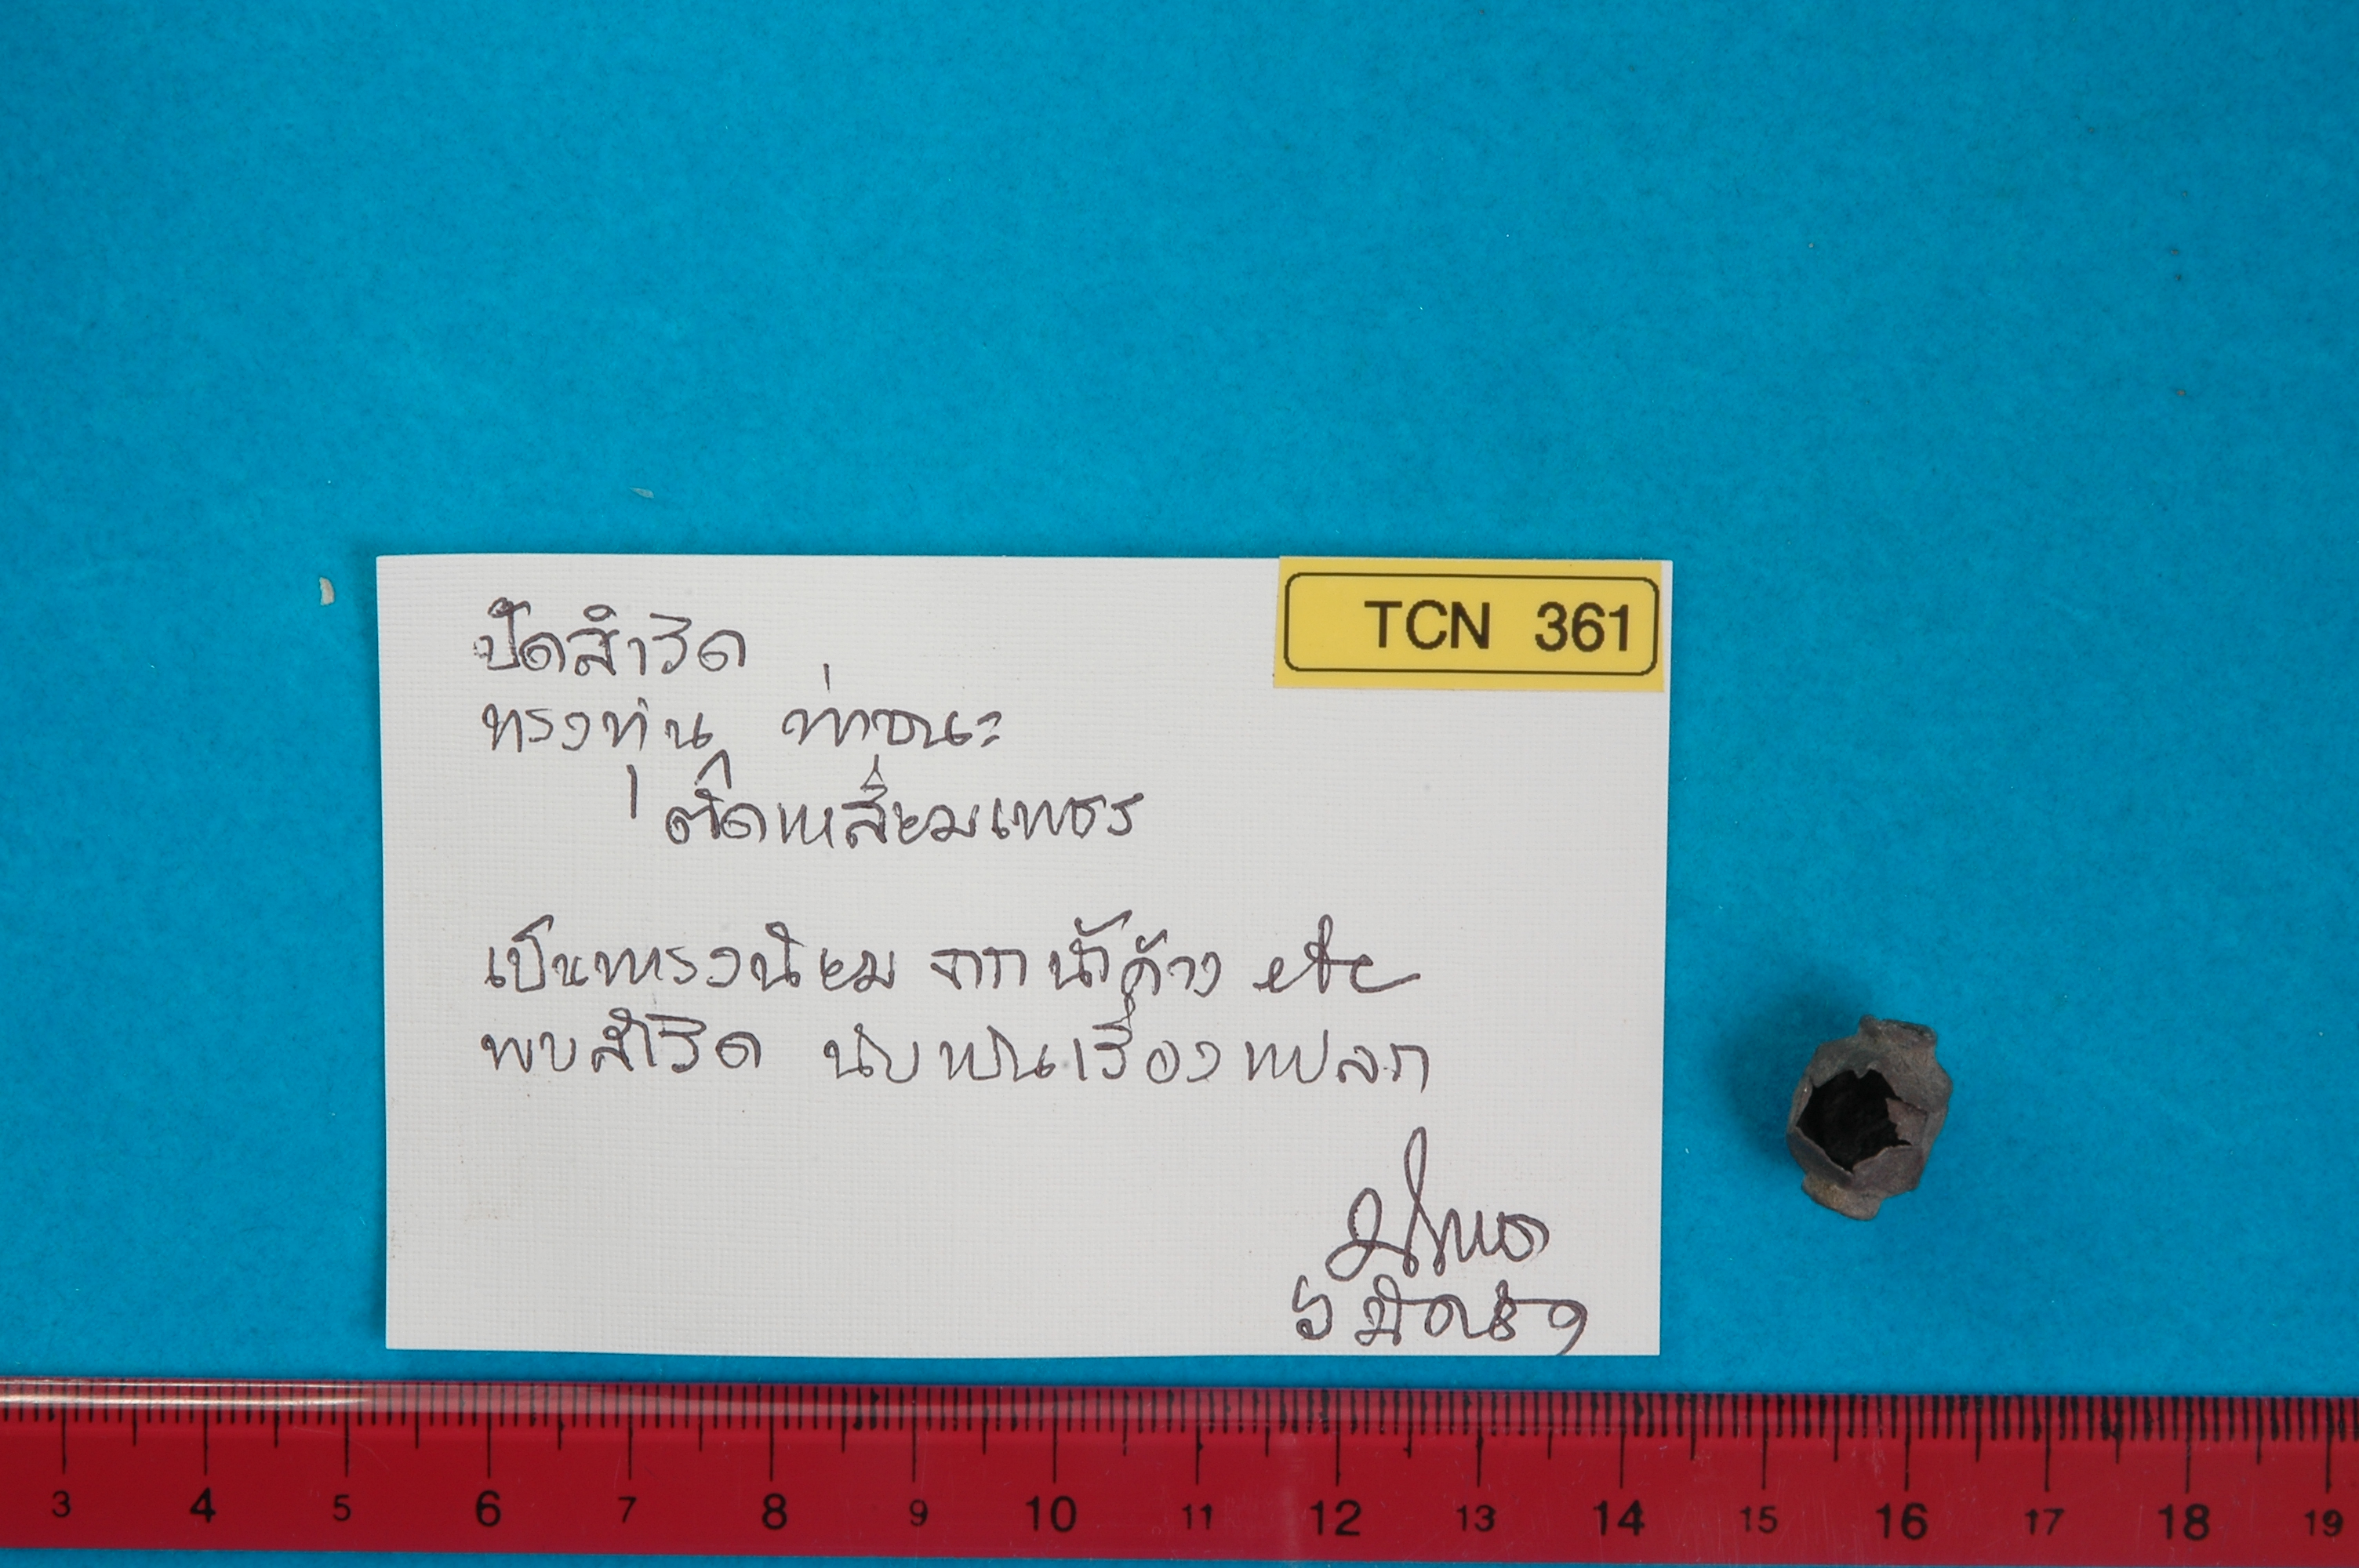 TCN 361
ปัดสำริด
ทรงทุ่น
ตัดเหลี่ยมเพชร
เป็นทรงนิยม จาก น้ำค้าง etc
พบสำริด นับเป็นเรื่องแปลก
3 4 5 6 7 8 9 10 11 12 13 14 15 16 17 18 19